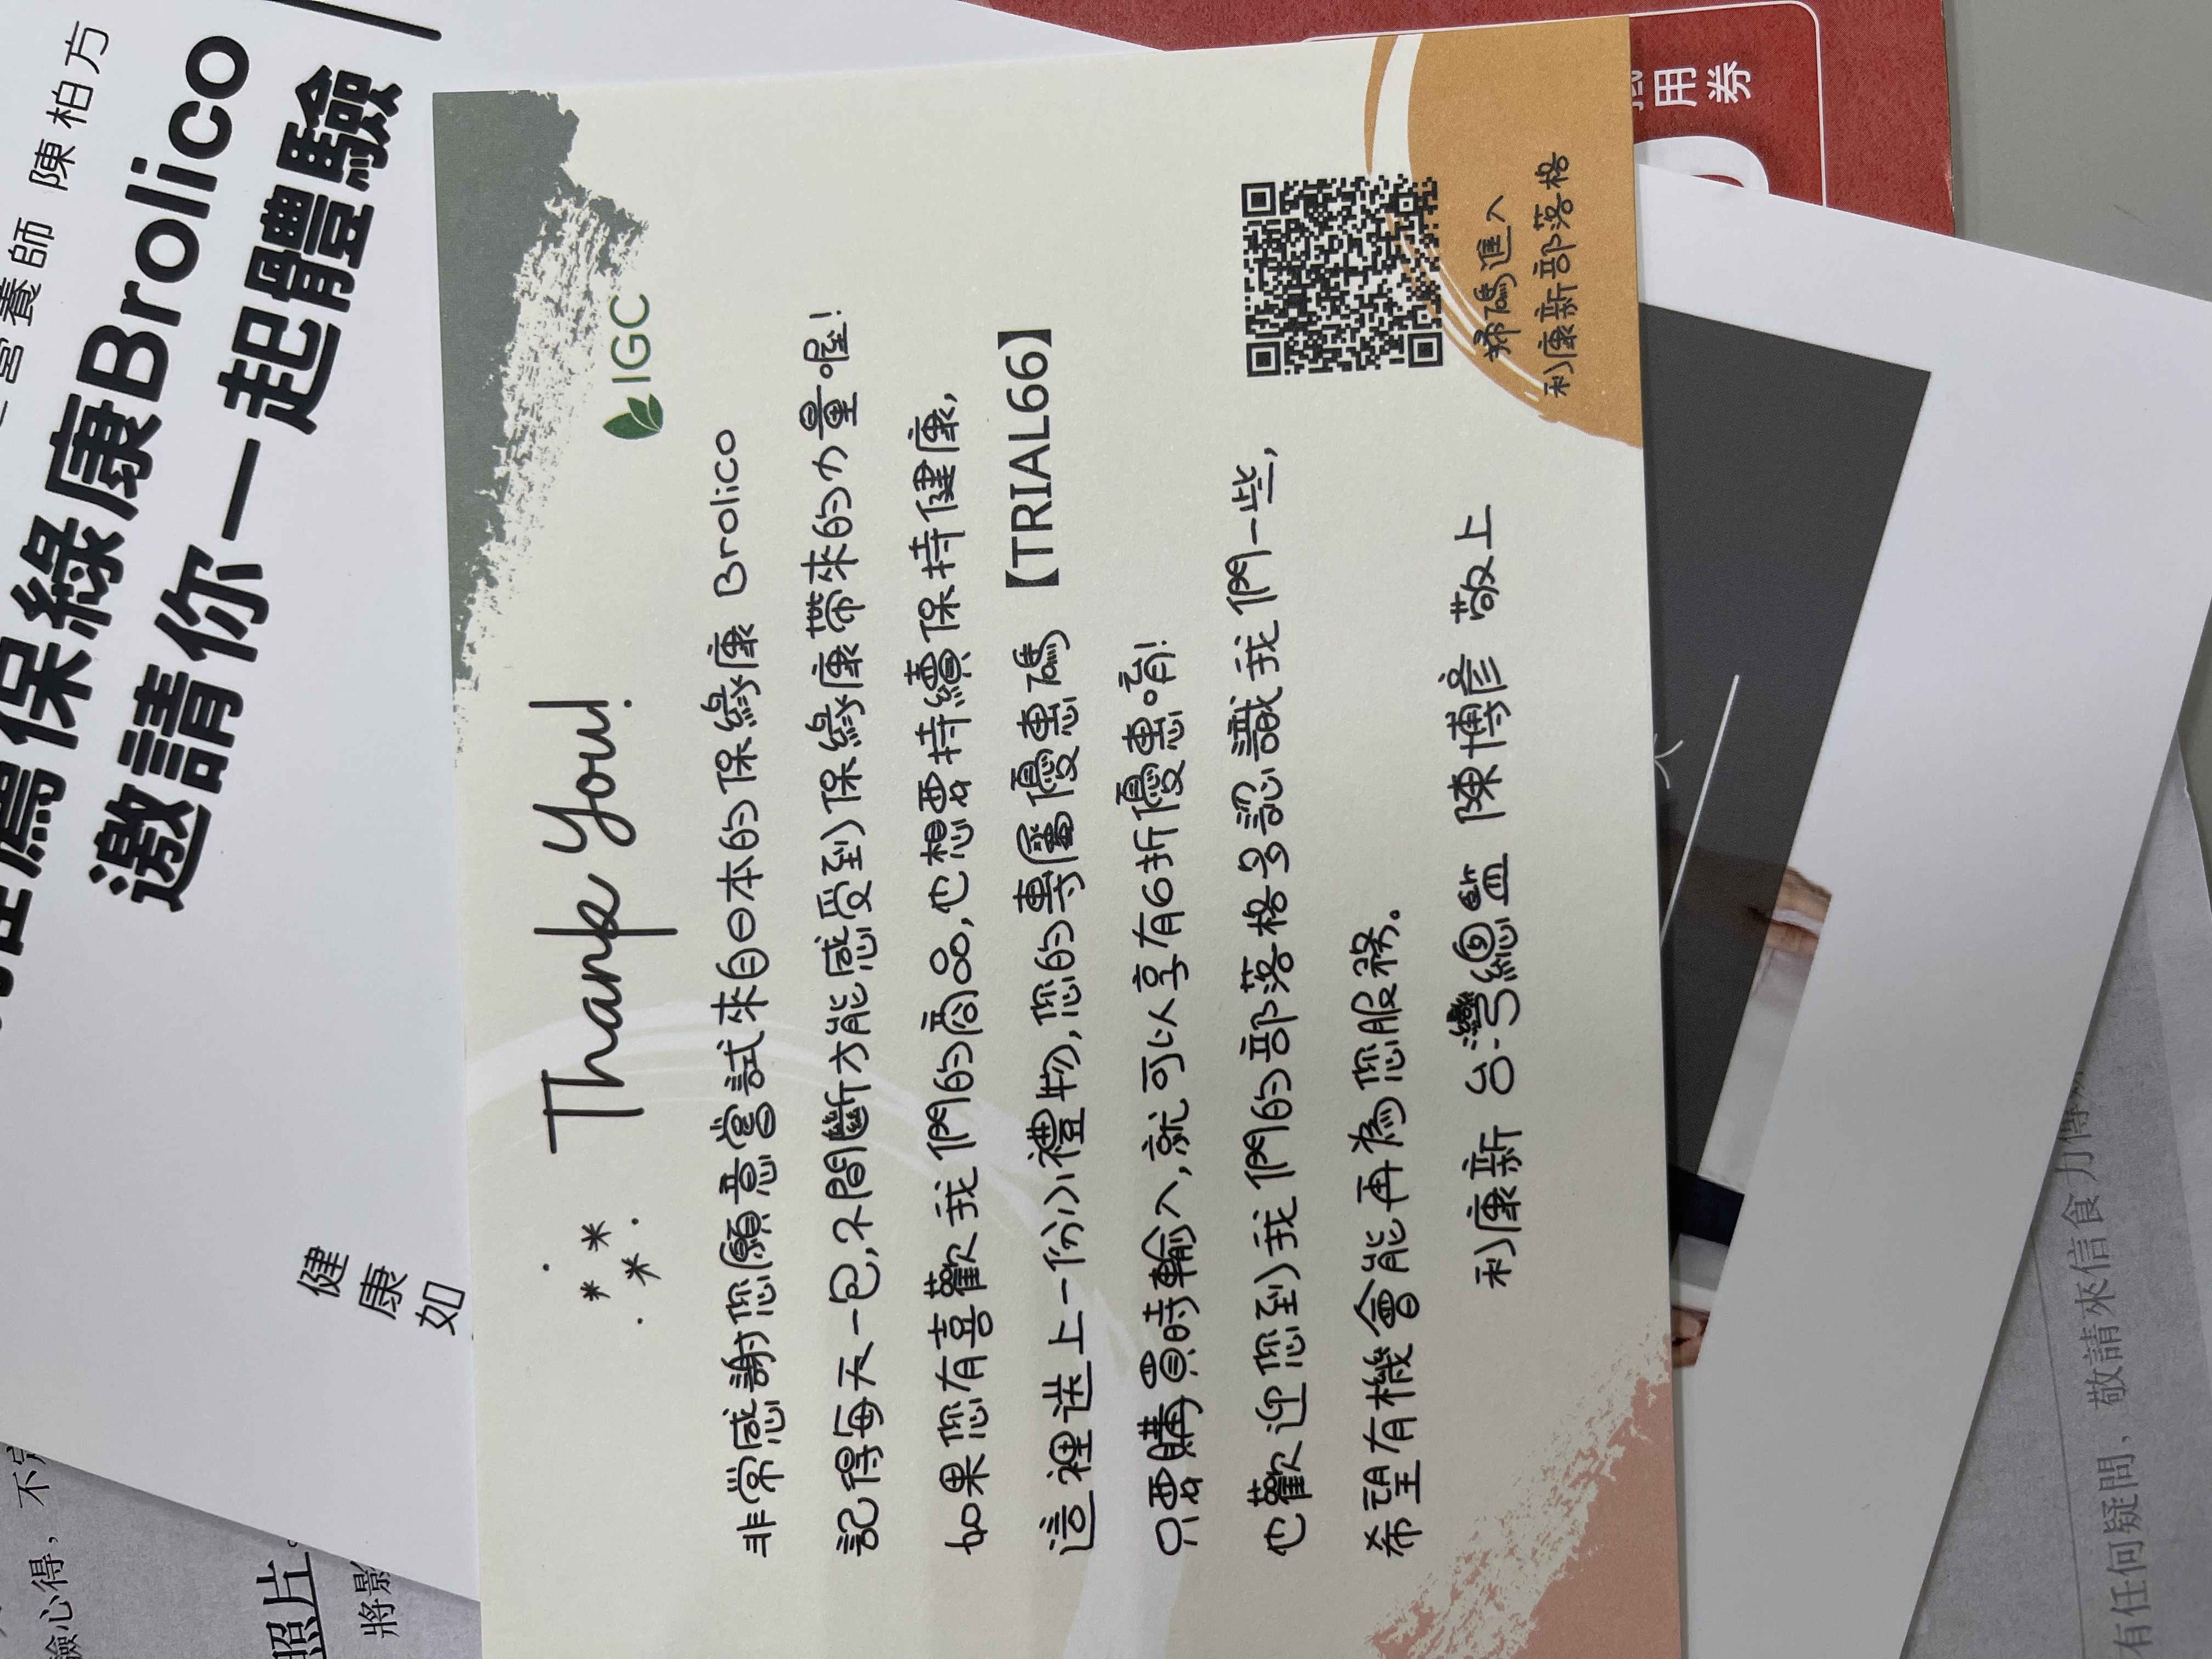 營養師 陳柏方
推薦保綠康Brolico
邀請你一起體驗
健
康
如
Thank You!
IGC
非常感謝您願意嘗試來自日本的保綠康 Brolico
記得每天一包,不間斷才能感受到保綠康帶來的力量喔!
如果您有喜歡我們的商品,也想要持續保持健康,
這裡送上一份小禮物,您的專屬優惠碼【TRIAL66】
只要購買時輸入,就可以享有6折優惠唷!
也歡迎您到我們的部落格多認識我們一些,
希望有機會能再為您服務。
利康新 台灣總監 陳博彥 敬上
掃碼進入
利康新部落格
用
券
驗心得，不
照片。
將影
有任何疑問，敬請來信食力傳